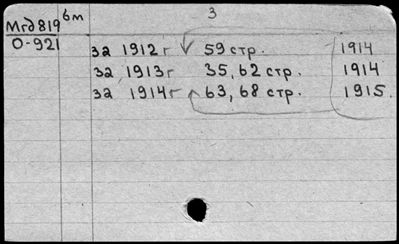 3
Мгд819 6т
О-921
за 1912г 59 стр. 1914
за 1913г 35, 62 стр. 1914
за 1914г 63, 68 стр. 1915.